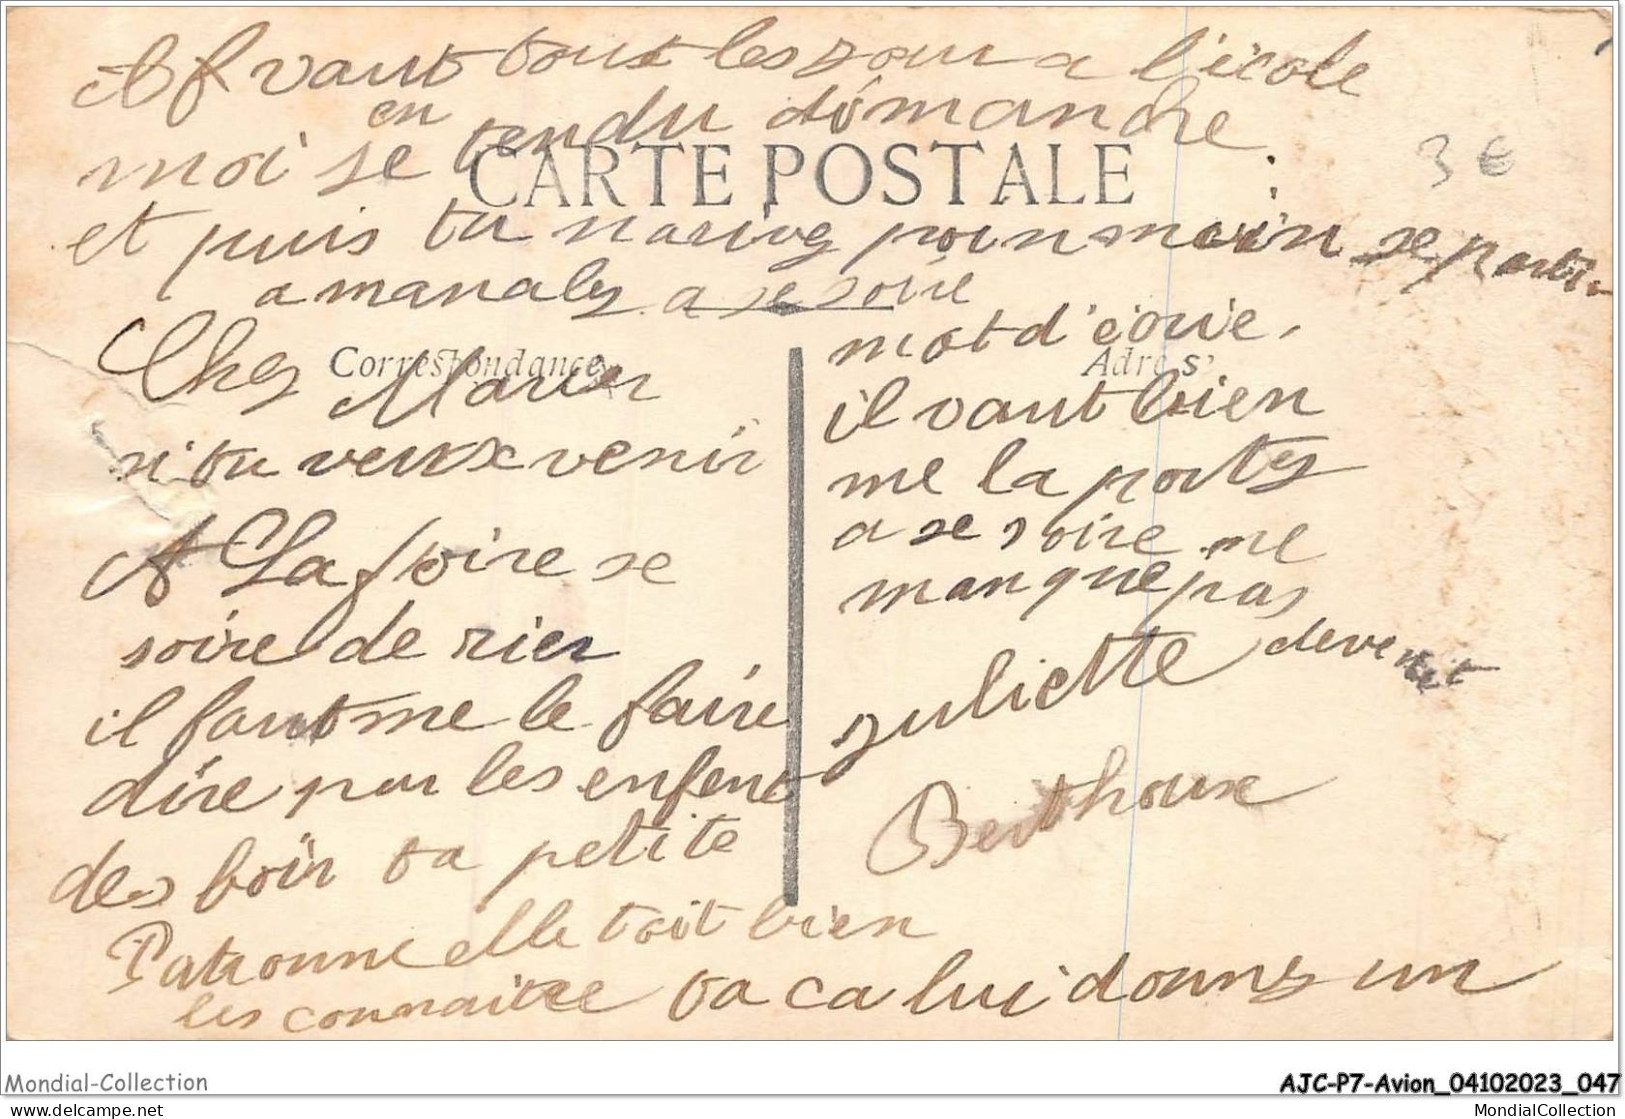 il f vaut tous les zour a l'école
en
moi se tendu dimanche
CARTE POSTALE
3 €
et puis tu narivez poin moin se
a manales a se soire
Correspondance
Adres
Chez
si tu veux venir
A La foire se
soire de rier
il faut me le faire
dire par les enfent
des boir ta petite
Patronne elle toit bien
les connaitre ta ca lui donns un
mot d'ecrie.
il vaut bien
me la portes
a se soire ne
manque pas
Juliette
Berthoux
Mondial-Collection
AJC-P7-Avion_04102023_047
https://www.delcampe.net
MondialCollection